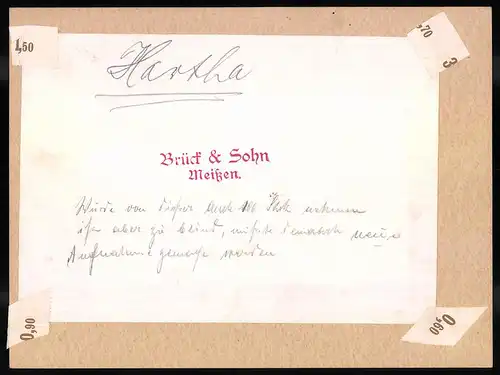 1,50
,70
3
Hartha
Brück & Sohn
Meißen.
Würde von dieser auch 100 Stck nehmen
ist aber zu blind, müßte demnach neue
Aufnahme gemacht werden
0,90
0,60